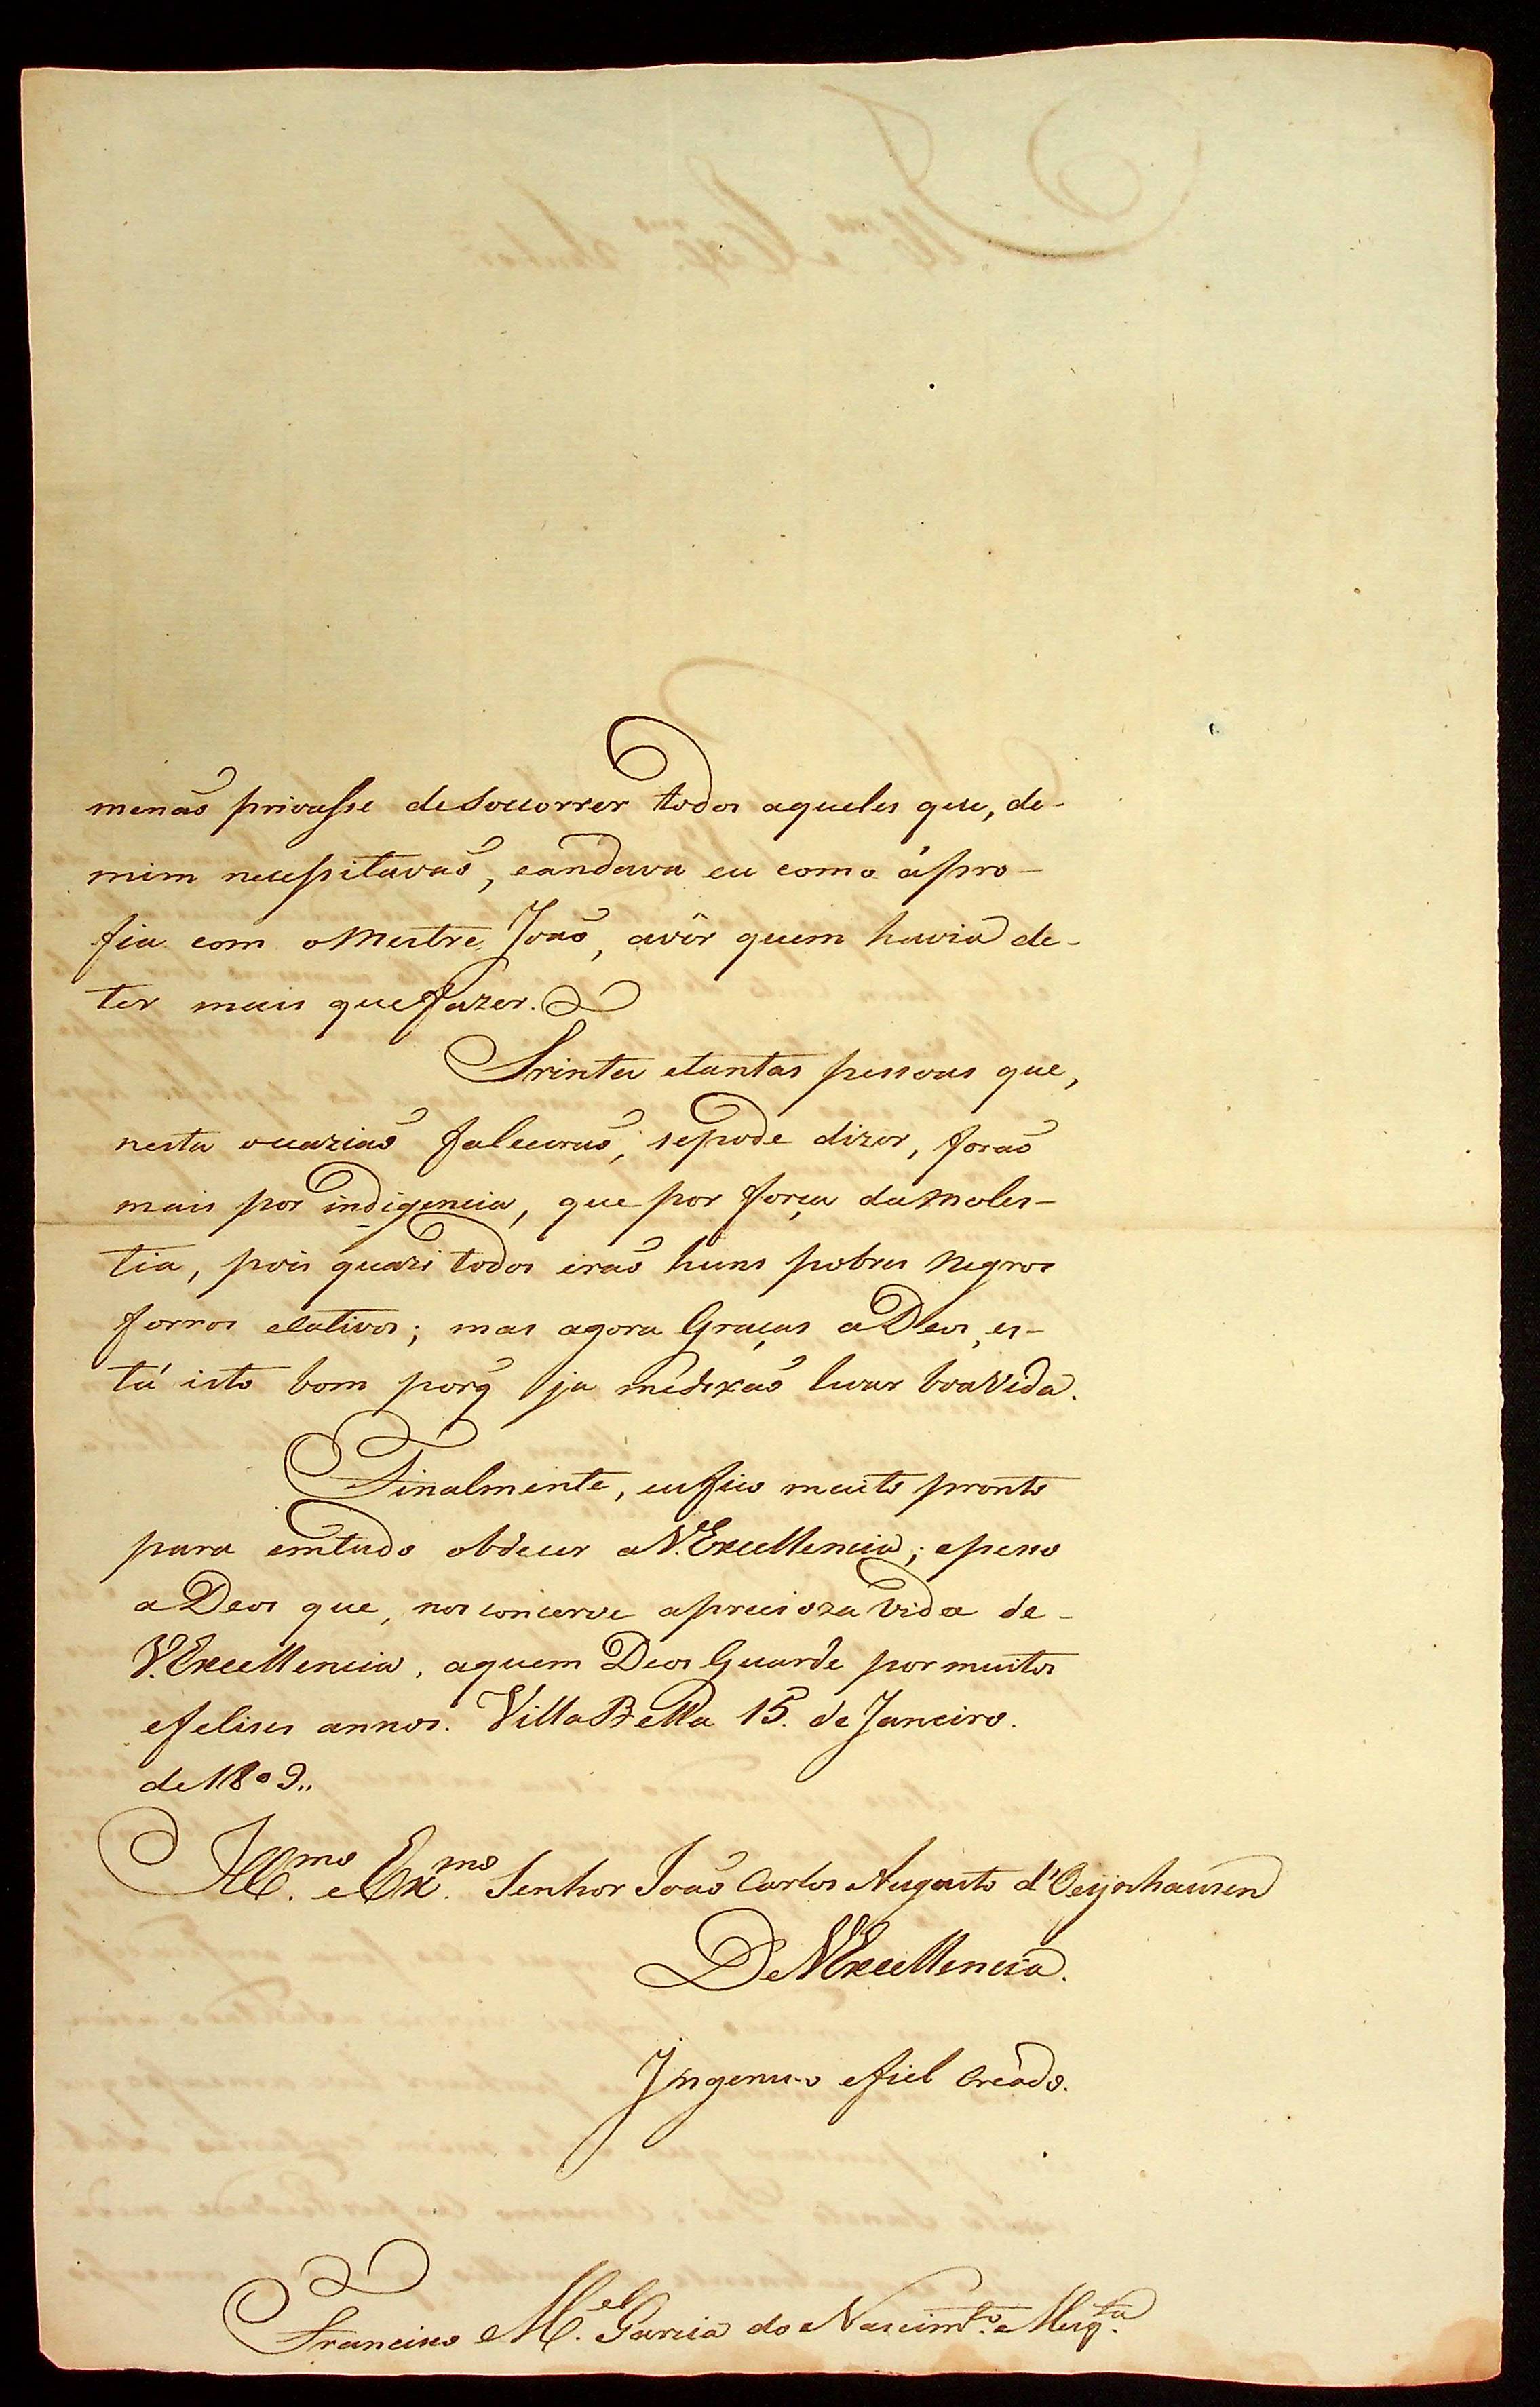 menaõ privasse deSocorrer todos aqueles que, de-
mim necessitavaõ, eandava eu como áPro-
fia com oMestre Joaõ, avêr quem havia de-
ter mais quefazer.
Trinta etantas pessoas que,
nesta ocaziaõ faleceraõ, sepode dizer, foraõ
mais por indigencia, que por força damoles-
tia, pois quazi todos eraõ huns pobres Negros
forros ecativos; mas agora Graças aDeos, es-
tá isto bom porq̃ ja medexaõ levar boavida.
Finalmente, eufico muito pronto
para emtudo obdecer aV.Excellencia; epesso
aDeos que, nosconcerve apreciozavida de-
V.Excellencia, aquem Deos Guarde pormuitos
efelises annos. VillaBella 15. de Janeiro.
de1809.,
Ill.mo eEx.mo Senhor Joaõ Carlos Augusto d'Oeynhausen
DeVExcellencia.
Jngenuo efiel Creádo.
Francisco M.el Garcia do Nascim.to Mesq.ta